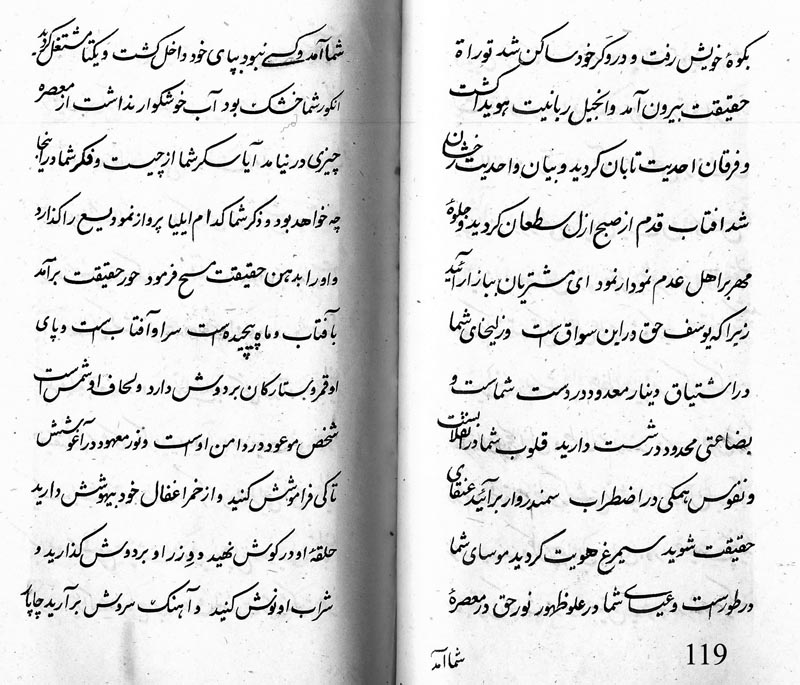 بکوهٔ خویش رفت و در وکر خود ساکن شد توراة
حقیقت بیرون آمد و انجیل ربانیت هویدا گشت
و فرقان احدیت تابان کردید و بیان واحدیت رخشان
شد افتاب قدم از صبح ازل سطعان کردید و جلوهٔ
مهر بر اهل عدم نمودار نمود ای مشتریان ببازار آئید
زیرا که یوسف حق در این سواق است و زلیخای شما
در اشتیاق دینار معدود در دست شماست و
بضاعتی محدود در شست دارید قلوب شما در انقلابست
و نفوس همکی در اضطراب سمندروار برآئید عنقای
حقیقت شوید سیمرغ هویت کردید موسای شما
در طور است و عیسای شما در علو ظهور نور حق در معصرهٔ
شما آمد
119
شما آمد و کسی نبود بپای خود داخل کشت و یکتا مشتغل کردید
انکور شما خشک بود آب خوشکوار نداشت از معصره
چیزی در نیامد آیا سکر شما از چیست و فکر شما در اینجا
چه خواهد بود و ذکر شما کدام ایلیا پرواز نمود یسع را کذارد
و او را بدهن حقیقت مسح فرمود حور حقیقت برآمد
با آفتاب و ماه پیچیده است سر او آفتاب است و پای
او قمر و ستارکان بر دوش دارد و لحاف او شمس است
شخص موعود در دامن اوست و نور معهود در آغوشش
تا کی فراموش کنید و از خمر اغفال خود بیهوش دارید
حلقهٔ او در کوش نهید و وزر او بر دوش کذارید و
شراب او نوش کنید و آهنک سروش برآرید چاپار